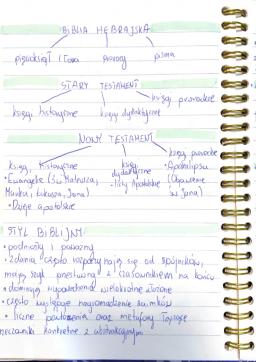 BIBLIA HEBRAJSKA
pięcioksiąg / Tora prorocy pisma
STARY TESTAMENT
księgi historyczne księgi dydaktyczne księgi prorockie
NOWY TESTAMENT
księgi historyczne księgi dydaktyczne księgi prorockie
• Ewangelie (św. Mateusza, • listy Apostolskie • Apokalipsa
Marka, Łukasza, Jana) (Objawienie św. Jana)
• Dzieje apostolskie
STYL BIBLIJNY
• podniosły i poważny
• Zdania często rozpoczynają się od spójników,
mają szyk przestawny z czasownikiem na końcu
• dominują wypowiedzenia wielokrotnie złożone
• często występuje nagromadzenie zaimków
• liczne powtórzenia oraz metafory łączące
znaczenia konkretne z abstrakcyjnym